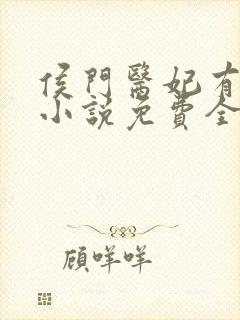 侯門醫妃有
小說免費全
顧咩咩